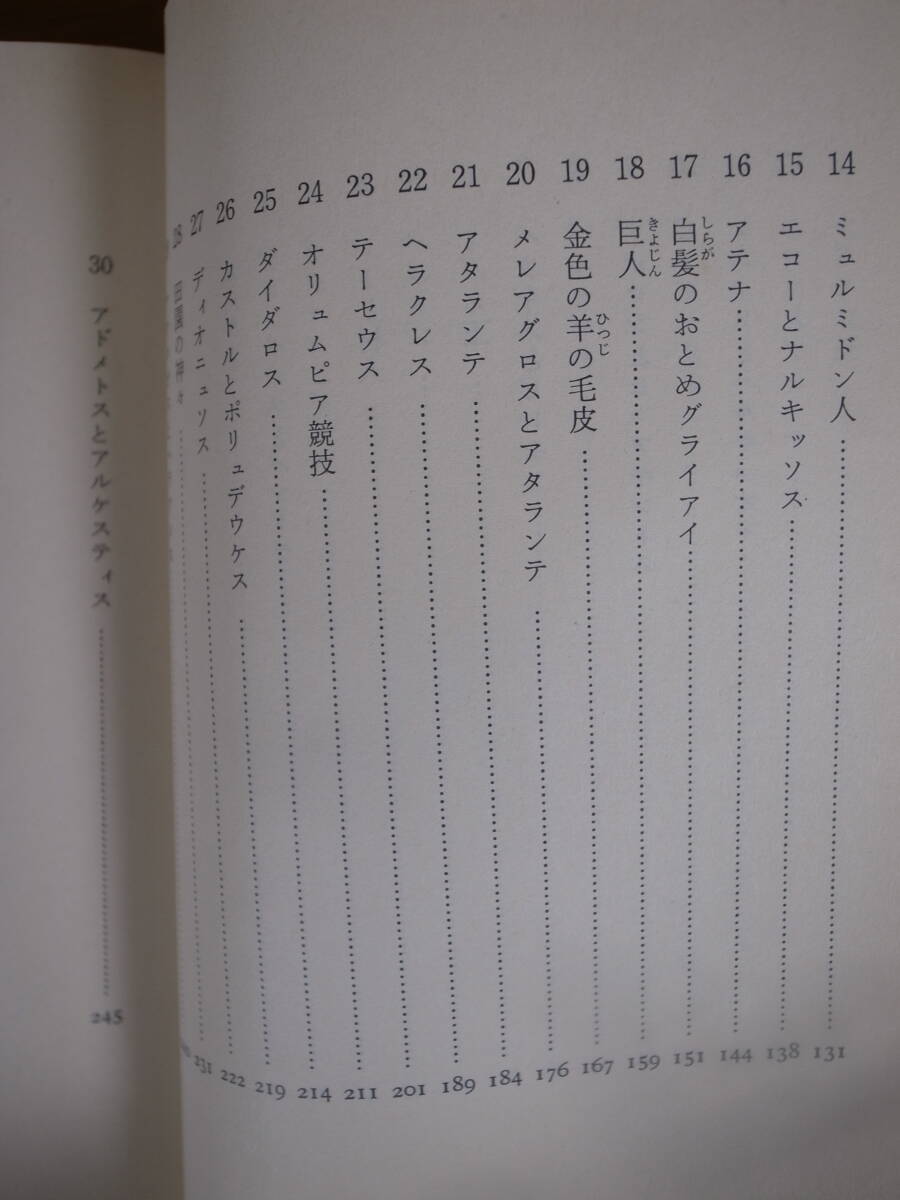 14 ミュルミドン人 131
15 エコーとナルキッソス 138
16 アテナ 144
しらが
17 白髪のおとめグライアイ 151
きょじん
18 巨人 159
ひつじ
19 金色の羊の毛皮 167
20 メレアグロスとアタランテ 176
21 アタランテ 184
22 ヘラクレス 189
23 テーセウス 201
24 オリュムピア競技 211
25 ダイダロス 214
26 カストルとポリュデウケス 219
27 ディオニュソス 222
28 田園の神々 231
30 アドメトスとアルケスティス 245